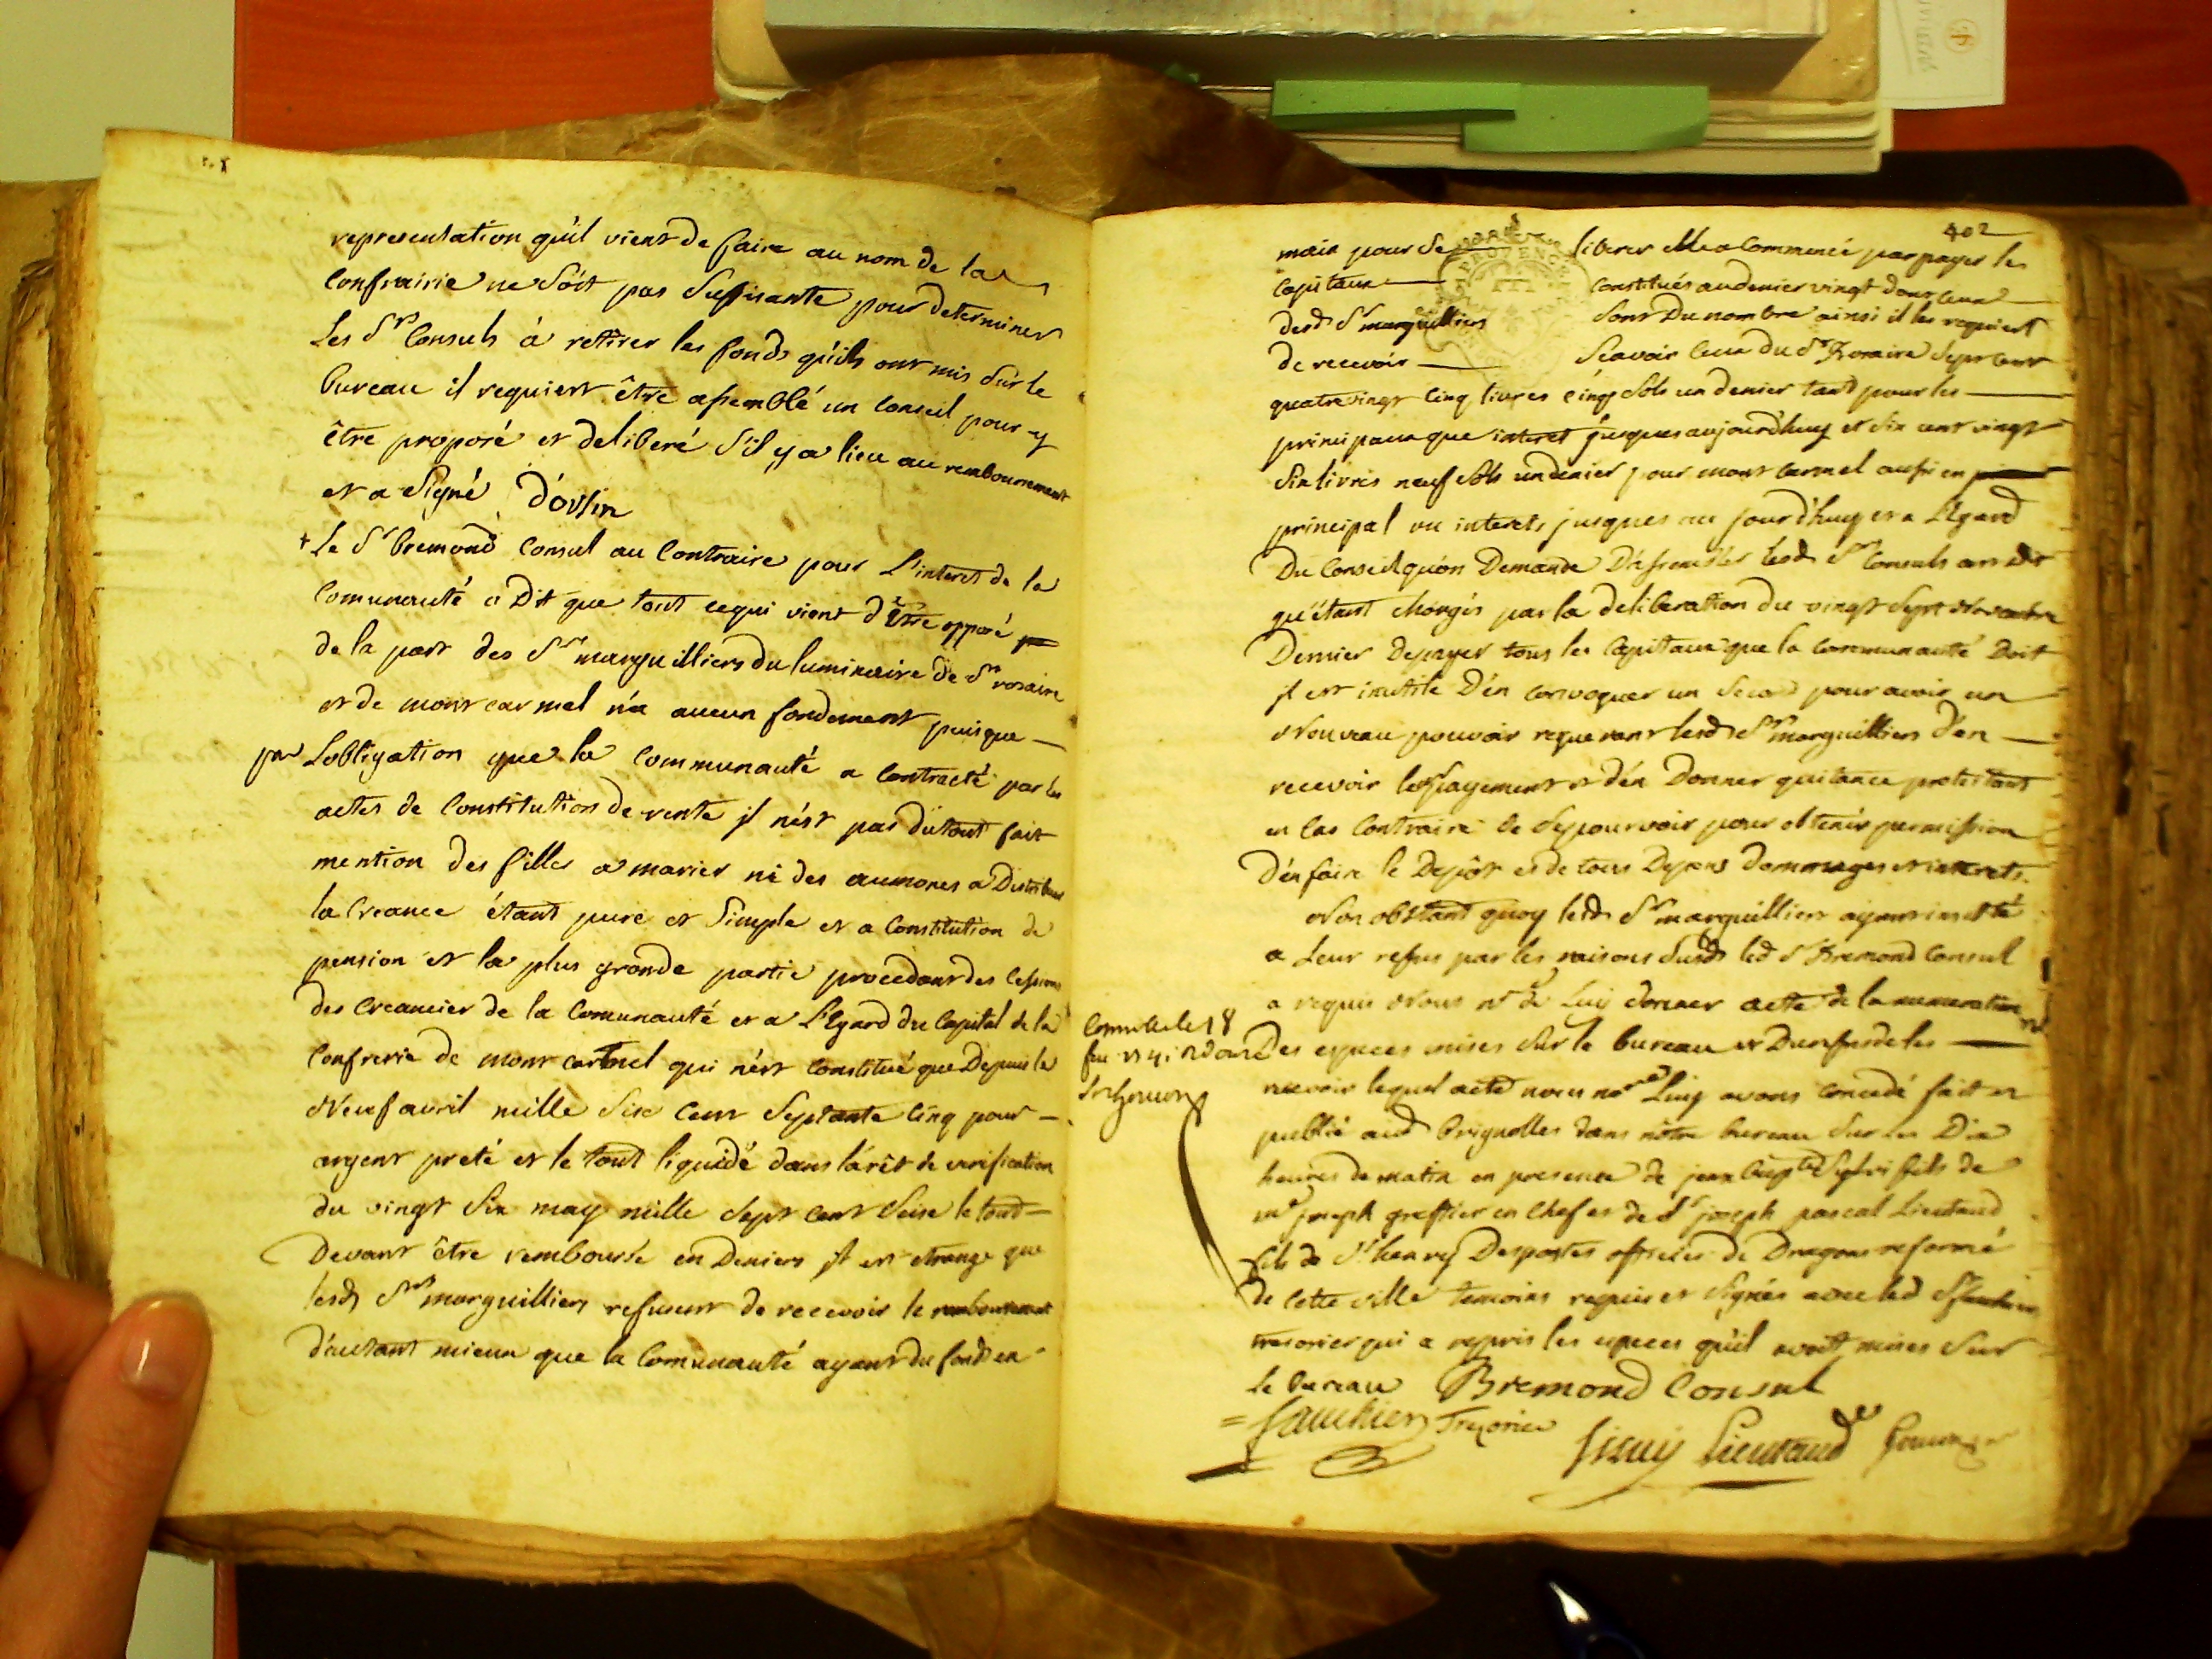 representation qu'il vient de faire au nom de la
Confrairie ne Soit pas Suffisante pour determiner
Les Srs Consuls à retirer les fonds qu'ils ont mis Sur le
bureau il requiert être assemblé un Conseil pour y
être proposé et deliberé S'il y a lieu au remboursement
et a Signé D'ovlin
+ Le Sr Bremond Consul au Contraire pour L'interet de la
Communauté a Dit que tout cequi vient d'être opposé
de la part des Srs marguilliers du luminaire de St rosaire
et de mont carmel n'a aucun fondement puisque
par Lobligation que la Communauté a Contracté par les
actes de Constitution de rente il n'est pas du tout fait
mention des filles a marier ni des aumones a Distribuer
la Creance étant pure et Simple et a Constitution de
pension et la plus grande partie procedant des Cessions
des Creancier de la Comunauté et a L'Egard du Capital de la
Confrerie de mont Carmel qui n'est Constitué que Depuis le
Neuf avril mille Six Cent Septante Cinq pour
argent preté et le tout liquidé dans l'arêt de verification
du vingt Six may mille Sept Cent Seise le tout
Devant être remboursé en Deniers il est etrange que
lesd Srs marguilliers refusent de recevoir le remboursement
d'autant mieux que la Comunauté ayant du fonds en
402
main pour Se liberer Elle a Commencé par payer les
Capitaux Constitués au denier vingt dont Ceux
desd Srs marguilliers Sont Du nombre ainsi il les requiert
de recevoir Scavoir Ceux du St Rosaire Sept Cent
quatre vingt Cinq livres Cinq Sols un denier tant pour les
principaux que interet jusques aujourd'huy et Six cent vingt
Six livres neuf Sols un denier pour mont Carmel aussi en
principal ou interets jusques au jourd'huy et a L'Egard
Du Conseil qu'on Demande D'assembler lesd Srs Consuls ont dit
qu'étant chargés par la deliberation du vingt Sept Novembre
Dernier depayer tous les Capitaux que la Communauté Doit
il est inutile D'en Convoquer un Second pour avoir un
Nouveau pouvoir requerant lesd Srs marguilliers d'en
recevoir le payement et d'en Donner quitance protestant
en Cas Contraire de Se pourvoir pour obtenir permission
D'en faire le Depôt et de tous Depens dommages et interets
Non obstant quoy lesd Srs marguilliers ayant insisté
a Leur refus par les raisons Susd led Sr Bremond Consul
a requis Nous nre de Luy donner acte de la numeration
des especes mises Sur le bureau et Du refus de les
recevoir lequel acte nous nre Luy avons Concedé fait et
publié aud Brignolles dans nôtre bureau Sur les Dix
heures de matin en presence de jean fils de
me joseph greffier en Chef et de Sr joseph pascal Lieutaud
fils de Sr henry Despostes officier de Dragons reformé
de Cette ville temoins requis et Signés avec led Sr
tresorier qui a repris les especes qu'il avoit mises Sur
le bureau Bremond Consul
Gauthier Trezorier Lieutaud